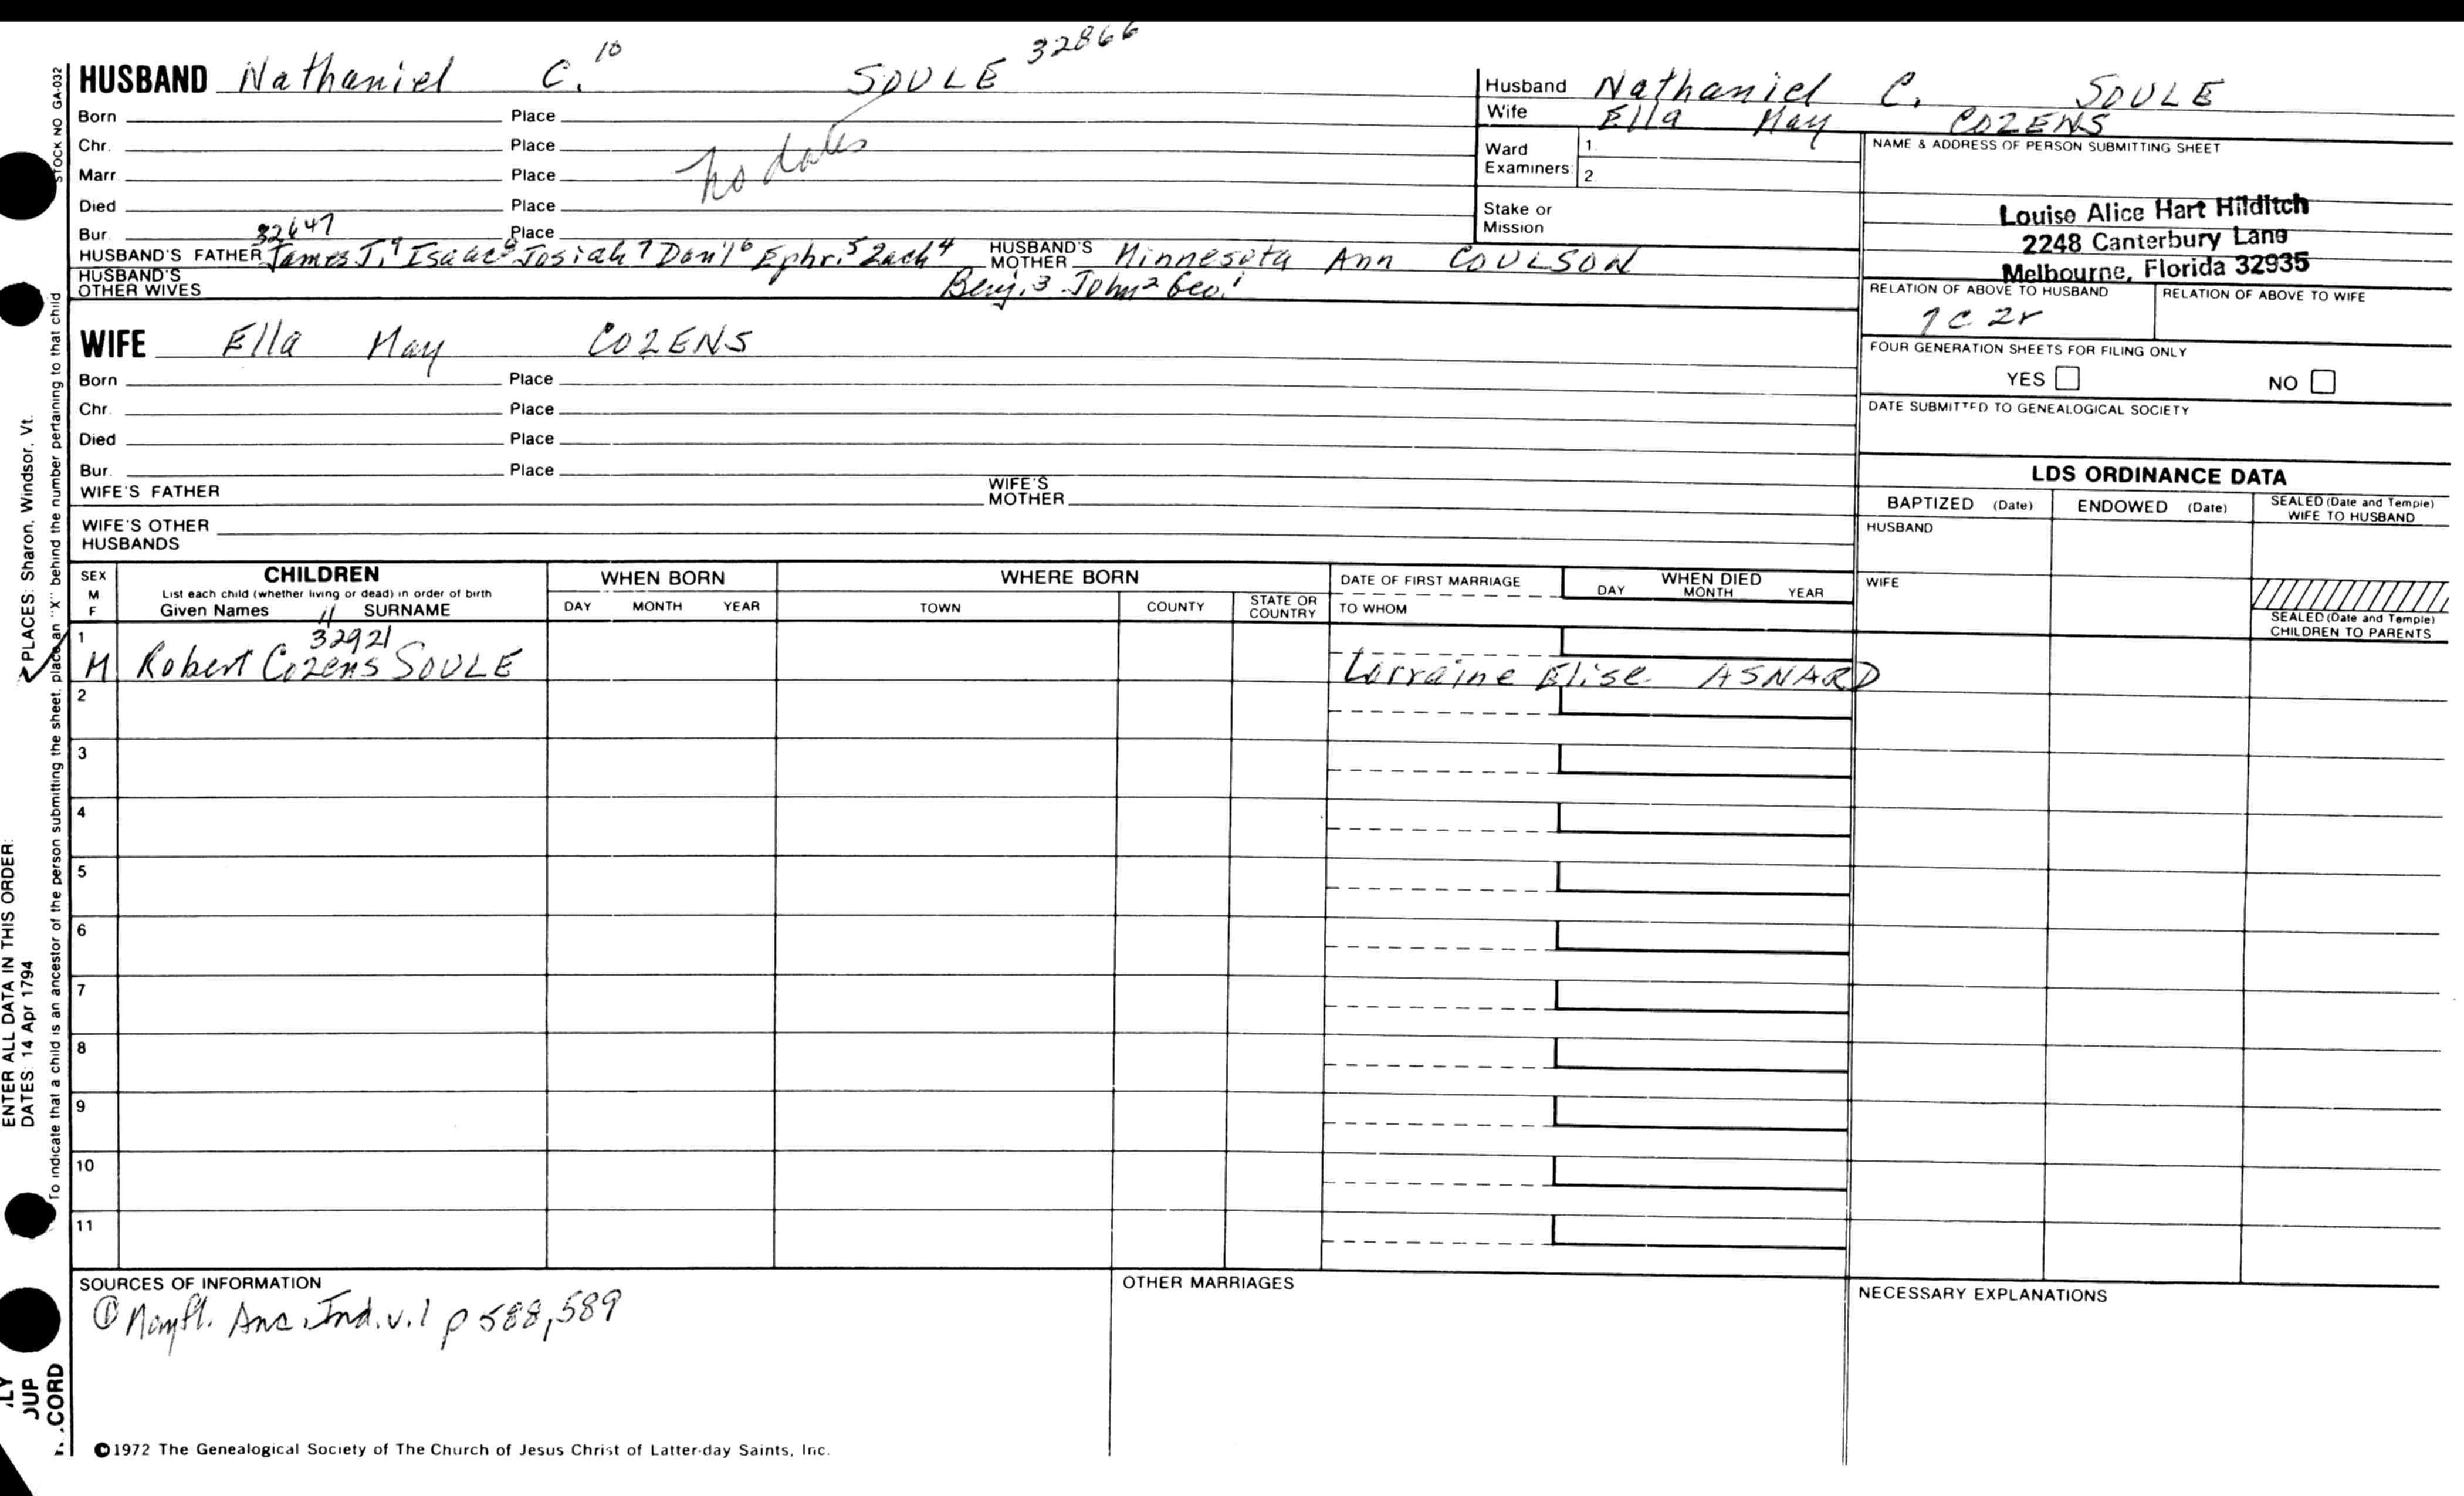 32866
HUSBAND Nathaniel C.10 SOULE
Born Place
Chr. Place
Marr Place
no dates
Died Place
Bur. Place
32647
HUSBAND'S FATHER James J.9 Isaac8 Josiah7 Dan'l6 Ephr.5 Zach4 HUSBAND'S MOTHER Minnesota Ann COULSON
HUSBAND'S OTHER WIVES Benj.3 John2 Geo.1
WIFE Ella May COZENS
Born Place
Chr. Place
Died Place
Bur. Place
WIFE'S FATHER WIFE'S MOTHER
WIFE'S OTHER HUSBANDS
Husband Nathaniel C. SOULE
Wife Ella May COZENS
Ward Examiners: 1.
2.
Stake or Mission
NAME & ADDRESS OF PERSON SUBMITTING SHEET
Louise Alice Hart Hilditch
2248 Canterbury Lane
Melbourne, Florida 32935
RELATION OF ABOVE TO HUSBAND RELATION OF ABOVE TO WIFE
7c 2r
FOUR GENERATION SHEETS FOR FILING ONLY
YES NO
DATE SUBMITTED TO GENEALOGICAL SOCIETY
LDS ORDINANCE DATA
BAPTIZED (Date) ENDOWED (Date) SEALED (Date and Temple) WIFE TO HUSBAND
HUSBAND
WIFE
SEALED (Date and Temple) CHILDREN TO PARENTS
SEX M F CHILDREN WHEN BORN WHERE BORN DATE OF FIRST MARRIAGE WHEN DIED
List each child (whether living or dead) in order of birth
Given Names 11 SURNAME DAY MONTH YEAR TOWN COUNTY STATE OR COUNTRY TO WHOM DAY MONTH YEAR
1 32921
M Robert Cozens SOULE Lorraine Elise ASNARD
2
3
4
5
6
7
8
9
10
11
SOURCES OF INFORMATION OTHER MARRIAGES NECESSARY EXPLANATIONS
① Mayfl. Anc. Ind. v.1 p 588, 589
©1972 The Genealogical Society of The Church of Jesus Christ of Latter-day Saints, Inc.
STOCK NO GA-032
To indicate that a child is an ancestor of the person submitting the sheet, place an "X" behind the number pertaining to that child
PLACES: Sharon, Windsor, Vt.
ENTER ALL DATA IN THIS ORDER:
DATES: 14 Apr 1794